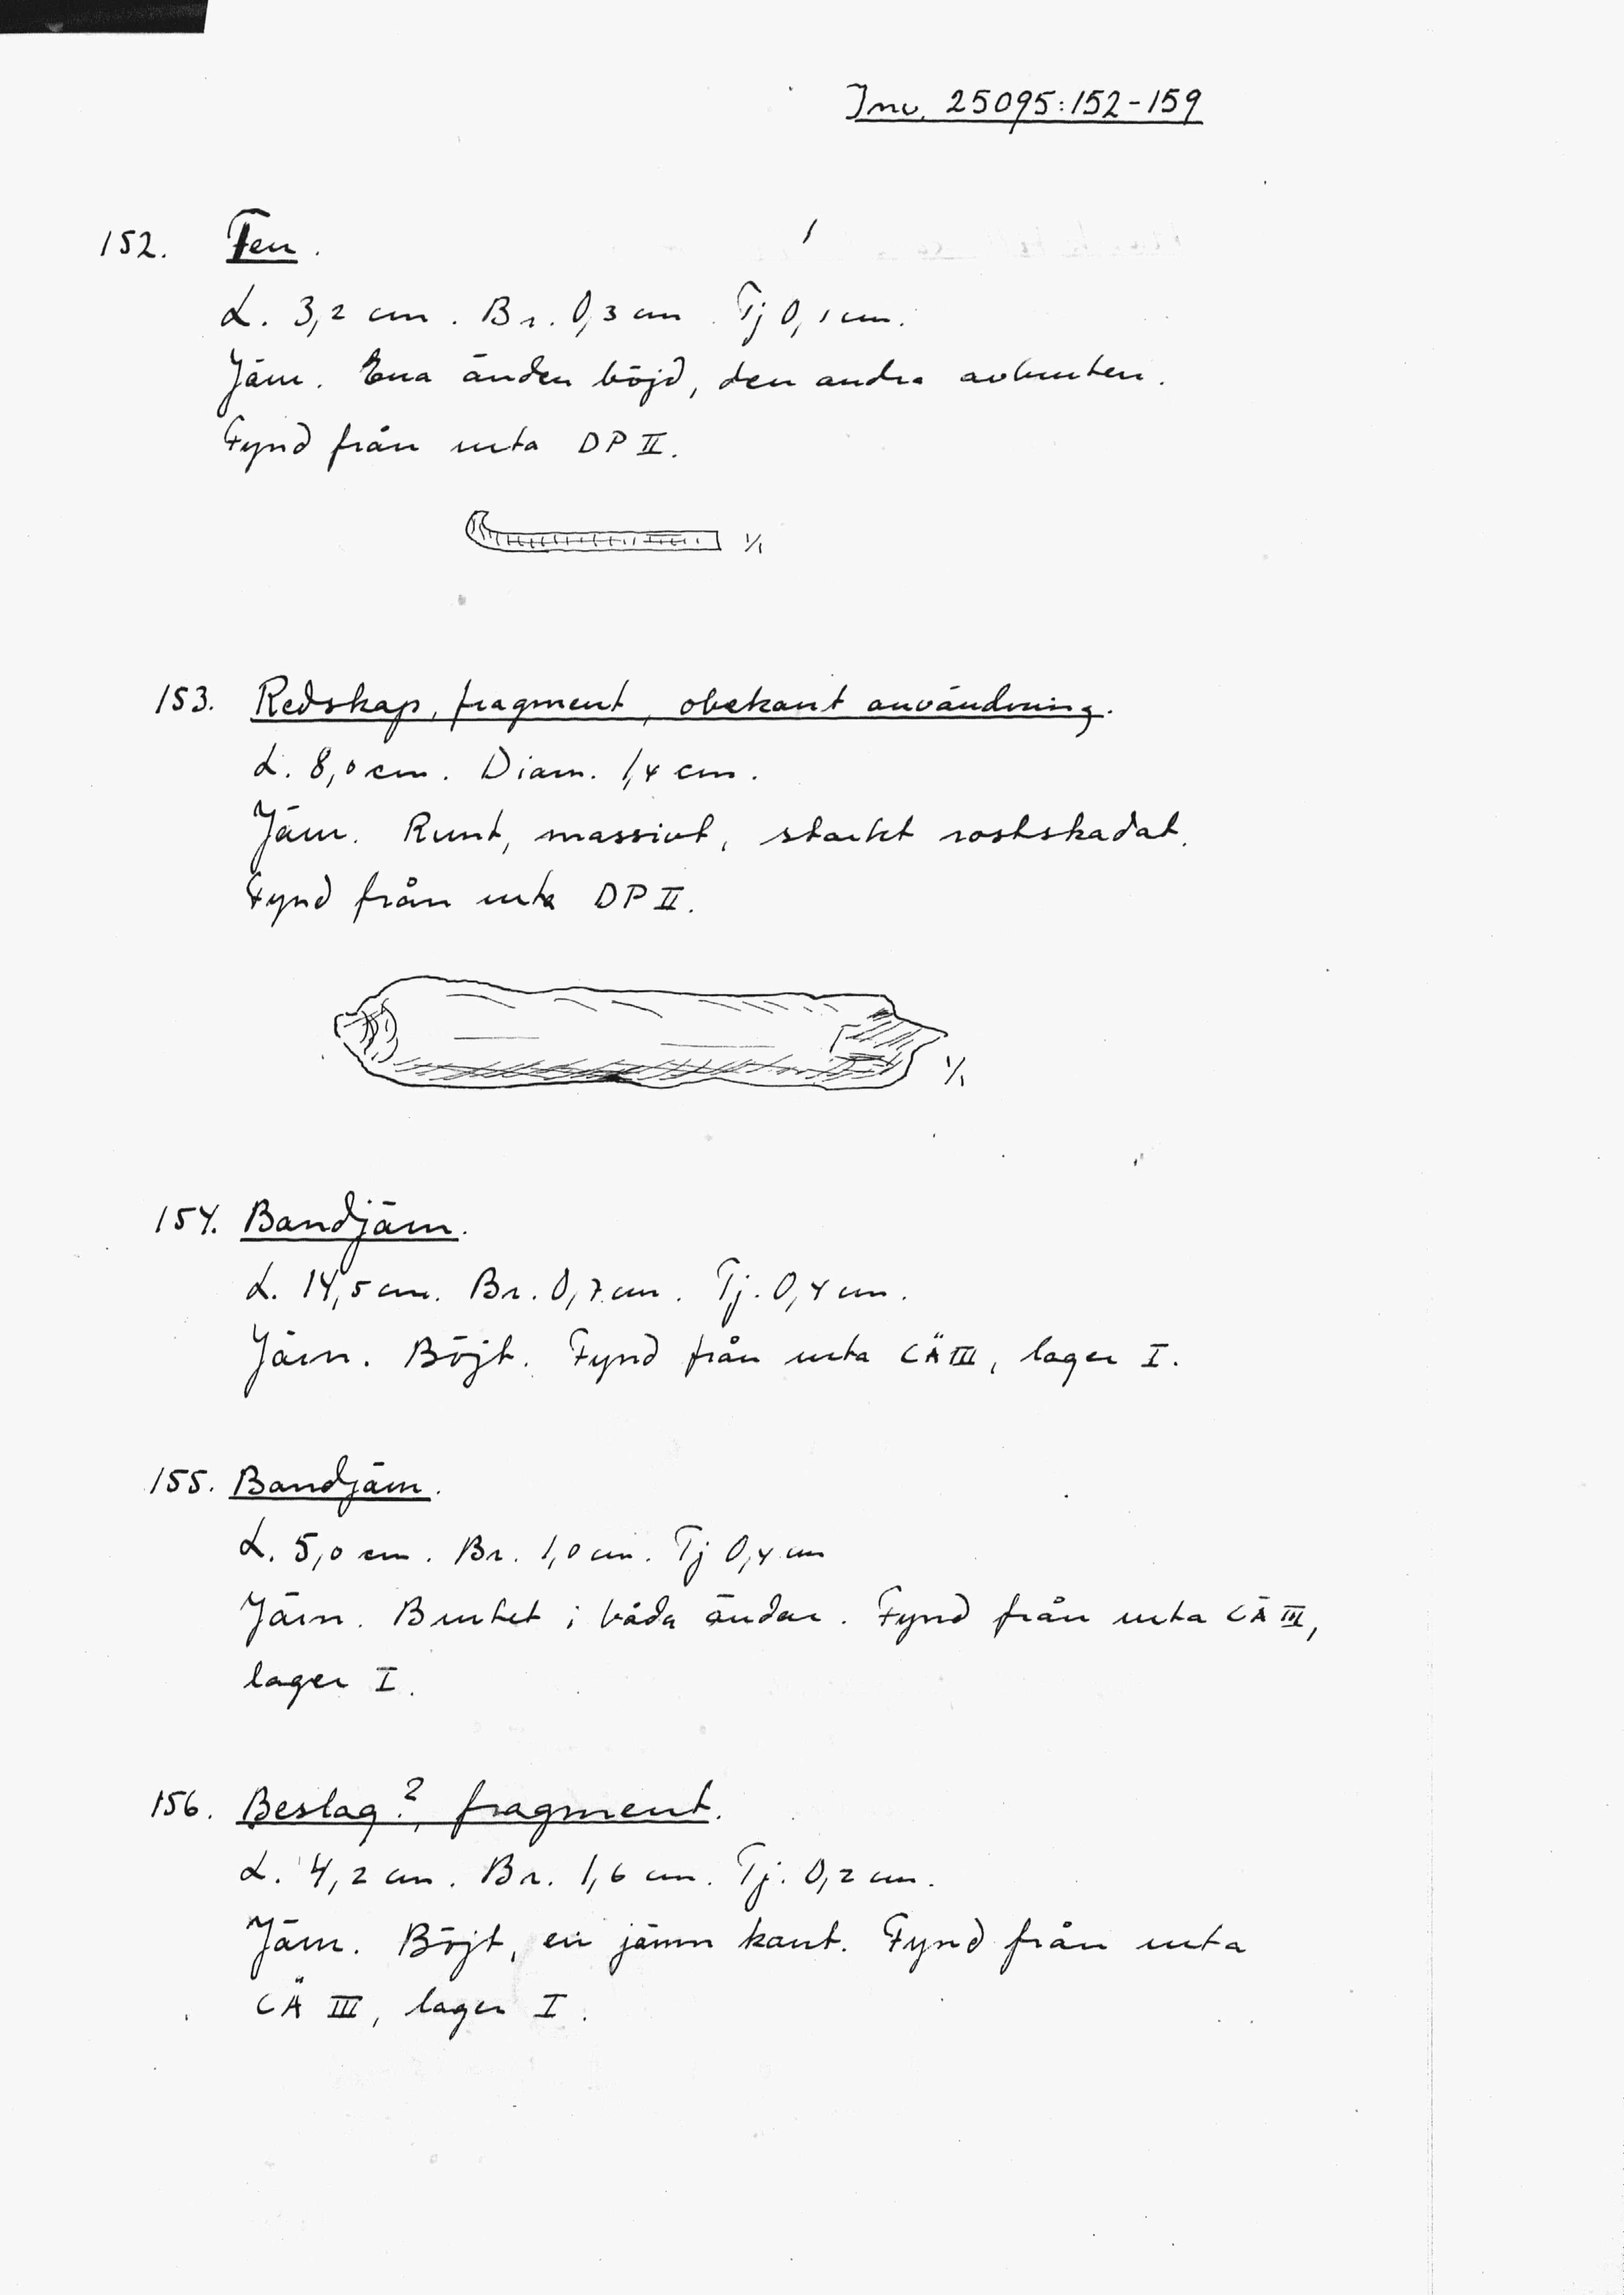 Inv. 25095:152-159
152. Ten.
L. 3,2 cm. Br. 0,3 cm. Tj 0,1 cm.
Järn. Ena änden böjd, den andra avbruten.
Fynd från ruta DP II.
1/1
153. Redskap, fragment, obekant användning.
L. 8,0 cm. Diam. 1,4 cm.
Järn. Runt, massivt, starkt rostskadat.
Fynd från ruta DP II.
1/1
154. Bandjärn.
L. 14,5 cm. Br. 0,7 cm. Tj. 0,4 cm.
Järn. Böjt. Fynd från ruta CÄ III, lager I.
155. Bandjärn.
L. 5,0 cm. Br. 1,0 cm. Tj 0,4 cm
Järn. Brutet i båda ändar. Fynd från ruta CÄ III,
lager I.
156. Beslag?, fragment.
L. 4,2 cm. Br. 1,6 cm. Tj. 0,2 cm.
Järn. Böjt, en jämn kant. Fynd från ruta
CÄ III, lager I.